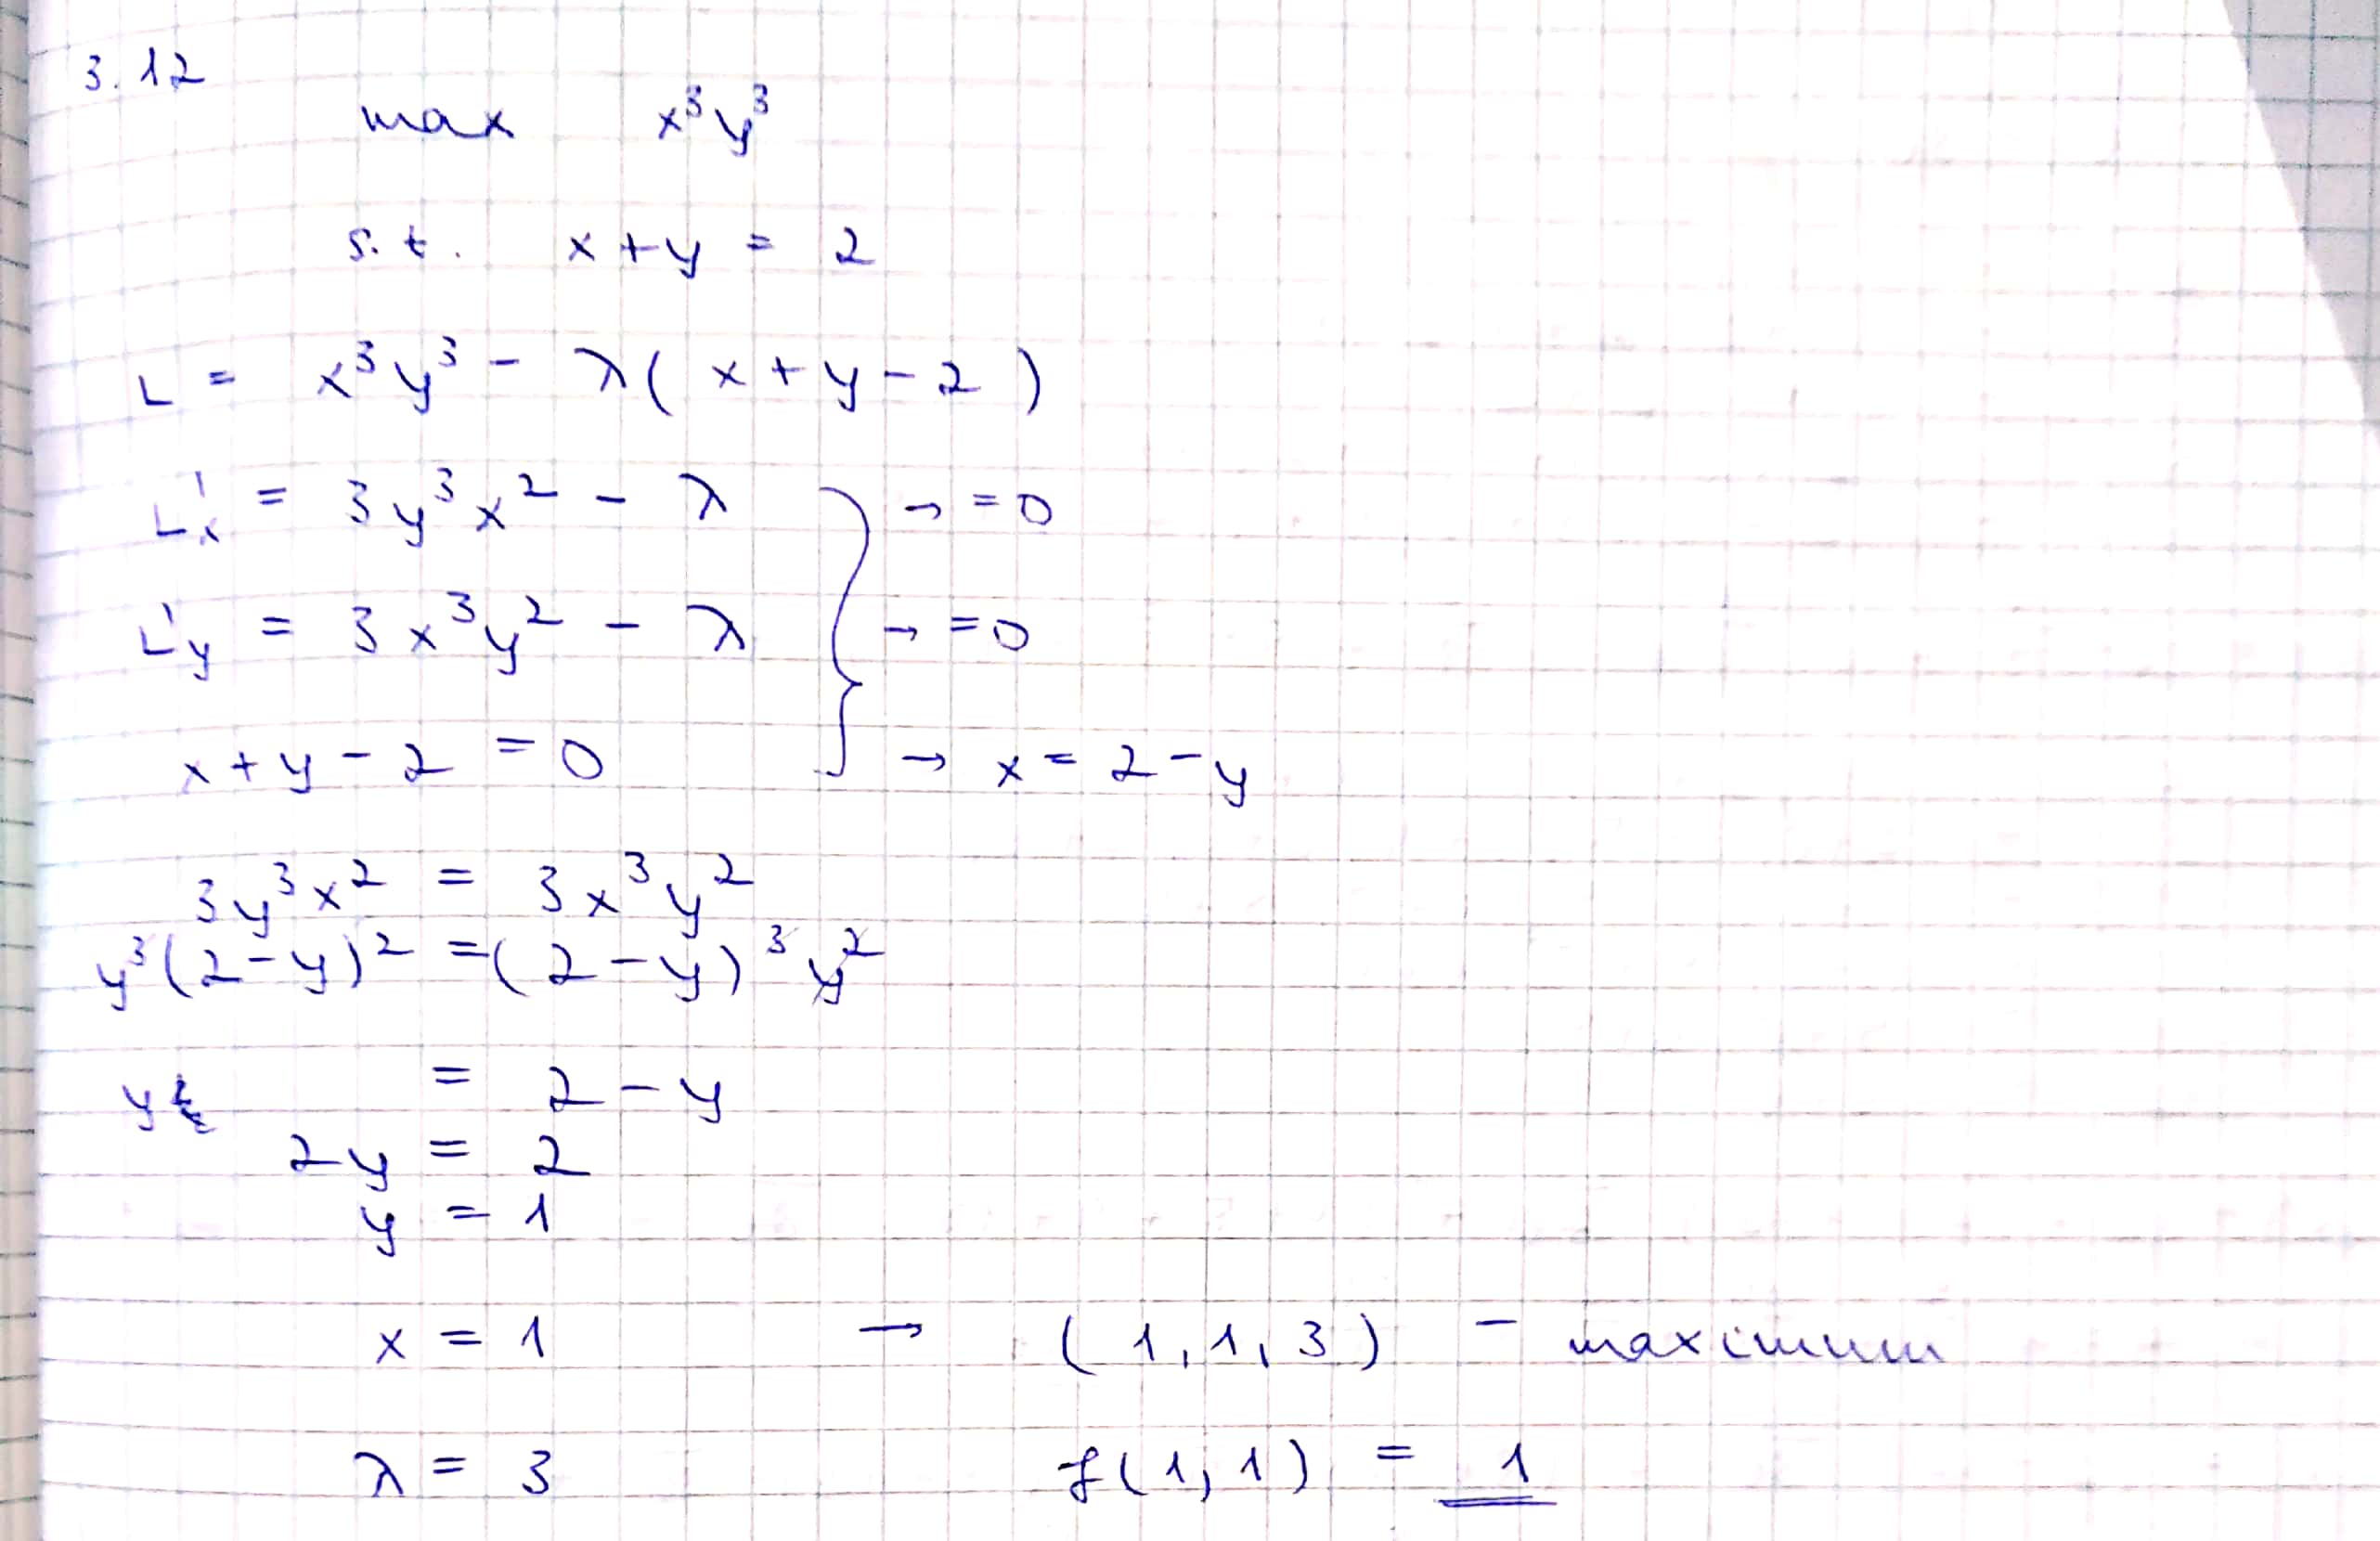 3.12
max x³y³
s.t. x+y = 2
L = x³y³ - λ(x+y-2)
L'x = 3y³x² - λ → =0
L'y = 3x³y² - λ → =0
x+y-2 =0 → x = 2-y
3y³x² = 3x³y²
y³(2-y)² =(2-y)³y²
y = 2-y
2y = 2
y = 1
x = 1 → (1,1,3) - maximum
λ = 3 f(1,1) = 1